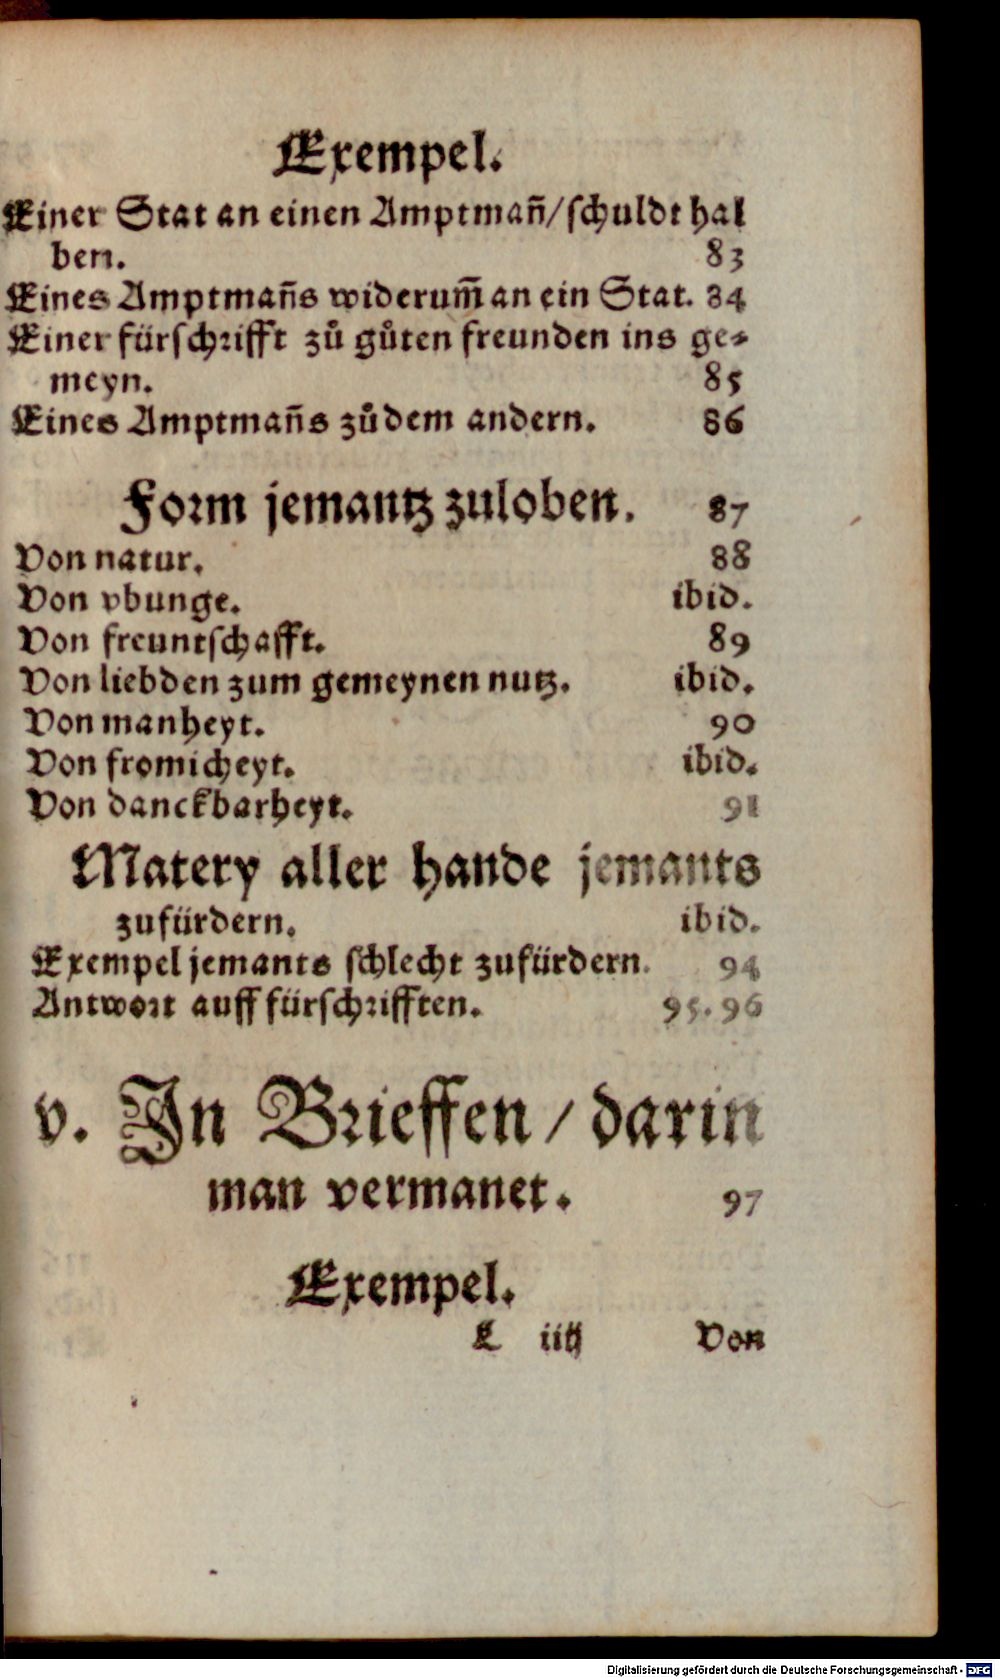 Exempel.
Einer Stat an einen Amptmañ/schuldt hal
ben. 83
Eines Amptmañs widerum̃ an ein Stat. 84
Einer fürschrifft zů gůten freunden ins ge⸗
meyn. 85
Eines Amptmañs zů dem andern. 86
Form jemantz zuloben. 87
Von natur. 88
Von vbunge. ibid.
Von freuntschafft. 89
Von liebden zum gemeynen nutz. ibid.
Von manheyt. 90
Von fromicheyt. ibid.
Von danckbarheyt. 91
Matery aller hande jemants
zufürdern. ibid.
Exempel jemants schlecht zufürdern. 94
Antwort auff fürschrifften. 95.96
v. In Brieffen / darin
man vermanet. 97
Exempel.
iiij Von
Digitalisierung gefördert durch die Deutsche Forschungsgemeinschaft - DFG